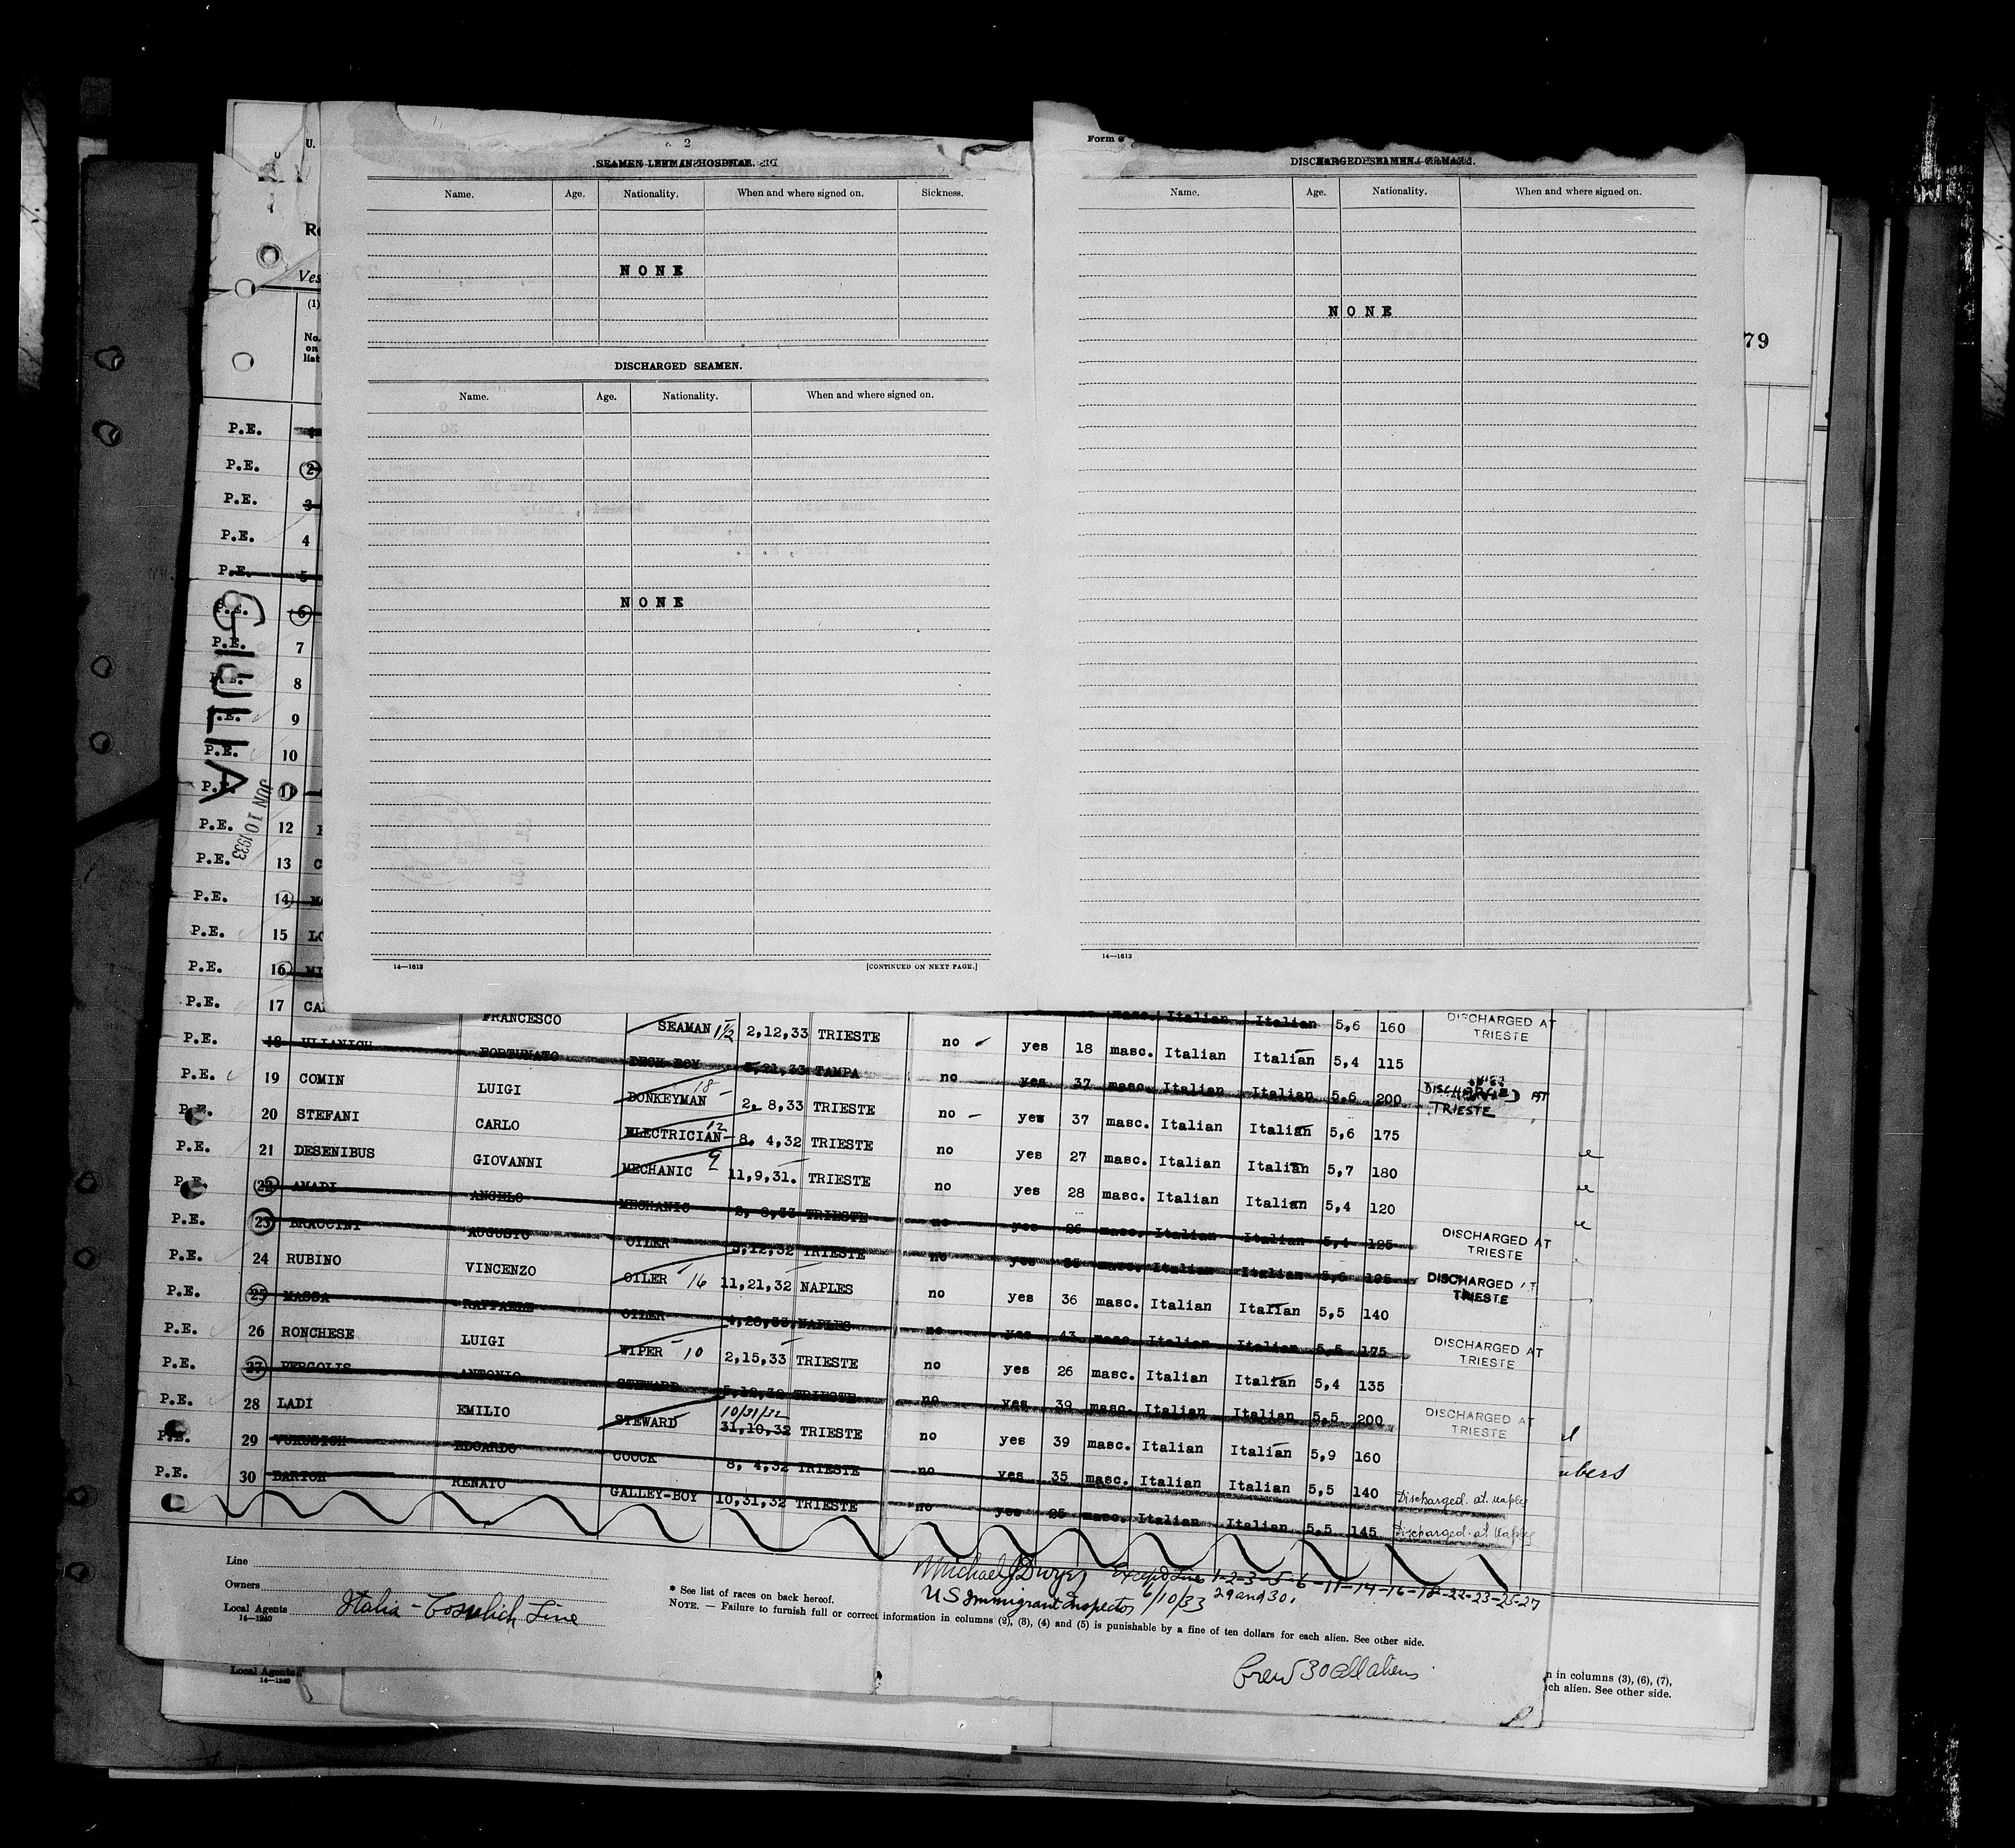 2
SEAMEN LEFT IN HOSPITAL
Name. Age. Nationality. When and where signed on. Sickness.
NONE
DISCHARGED SEAMEN.
Name. Age. Nationality. When and where signed on.
NONE
14—1613 [CONTINUED ON NEXT PAGE.]
Form
DISCHARGED SEAMEN
Name. Age. Nationality. When and where signed on.
NONE
14—1613
79
U.
Ves
(1)
No. on list
P.E.
P.E. 2
P.E. 3
P.E. 4
P.E. 5
P.E. 6
P.E. 7
8
P.E. 9
P.E. 10
P.E. 11
P.E. 12
P.E. 13 C
P.E. 14
P.E. 15 LO
P.E. 16 MI
GIULIA
JUN 10 1933
P.E. 17 CA FRANCESCO SEAMAN 1½ 2,12,33 TRIESTE no yes 18 masc. Italian Italian 5,4 115
masc. Italian Italian 5,6 160 DISCHARGED AT TRIESTE
P.E. 18 ULIANICH FORTUNATO DECK BOY 5,21,33 TAMPA no yes 37 masc. Italian Italian 5,6 200 DISCHARGED AT TRIESTE
P.E. 19 COMIN LUIGI DONKEYMAN 18 2,8,33 TRIESTE no yes 37 masc. Italian Italian 5,6 175
P.E. 20 STEFANI CARLO ELECTRICIAN 12 8,4,32 TRIESTE no yes 27 masc. Italian Italian 5,7 180
P.E. 21 DESENIBUS GIOVANNI MECHANIC 9 11,9,31. TRIESTE no yes 28 masc. Italian Italian 5,4 120
P.E. 22 AMADI ANGELO MECHANIC 2,8,33 TRIESTE no yes 26 masc. Italian Italian 5,4 125 DISCHARGED AT TRIESTE
P.E. 23 BRACCINI AUGUSTO OILER 5,12,32 TRIESTE no yes 35 masc. Italian Italian 5,6 195 DISCHARGED AT TRIESTE
P.E. 24 RUBINO VINCENZO OILER 16 11,21,32 NAPLES no yes 36 masc. Italian Italian 5,5 140
P.E. 25 MASSA RAFFAELE OILER 4,28,33 NAPLES no yes 43 masc. Italian Italian 5,5 175 DISCHARGED AT TRIESTE
P.E. 26 RONCHESE LUIGI WIPER 10 2,15,33 TRIESTE no yes 26 masc. Italian Italian 5,4 135
P.E. 27 PERCOLIS ANTONIO STEWARD TRIESTE no yes 39 masc. Italian Italian 5,5 200 DISCHARGED AT TRIESTE
P.E. 28 LADI EMILIO STEWARD 10/31/32 31,10,32 TRIESTE no yes 39 masc. Italian Italian 5,9 160
P.E. 29 EDOARDO COOCK 8,4,32 TRIESTE no yes 35 masc. Italian Italian 5,5 140 Discharged at Naples
P.E. 30 RENATO GALLEY-BOY 10,31,32 TRIESTE no yes 25 masc. Italian Italian 5,5 145 Discharged at Naples
Line
Owners
Local Agents Italia - Cosulich Line
14—1240
Michael J Dwyer Except Line 1-2-3-5-6-11-14-16-18-22-23-25-27
US Immigrant Inspector 6/10/33 29 and 30.
* See list of races on back hereof.
NOTE. — Failure to furnish full or correct information in columns (2), (3), (4) and (5) is punishable by a fine of ten dollars for each alien. See other side.
Crew 30 all aliens
Local Agents
14—1240
n in columns (3), (6), (7),
ich alien. See other side.